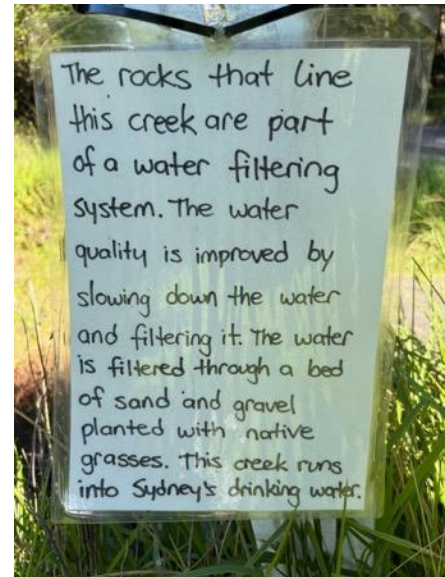 The rocks that line
this creek are part
of a water filtering
system. The water
quality is improved by
slowing down the water
and filtering it. The water
is filtered through a bed
of sand and gravel
planted with native
grasses. This creek runs
into Sydney's drinking water.